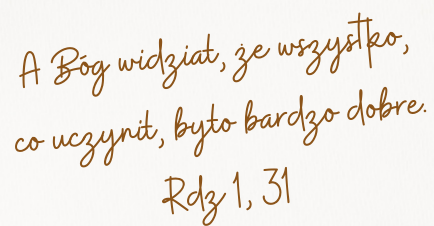 A Bóg widział, że wszystko,
co uczynił, było bardzo dobre.
Rdz 1, 31